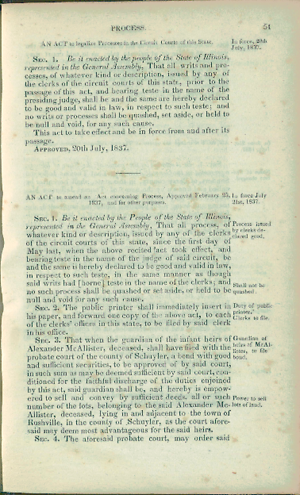 PROCESS. 51
AN ACT to legalize Processes in the Circuit Courts of this State.
In force, 20th
July, 1837.
SEC. 1. Be it enacted by the people of the State of Illinois,
represented in the General Assembly, That all writs and pro-
cesses, of whatever kind or description, issued by any of
the clerks of the circuit courts of this state, prior to the
passage of this act, and bearing teste in the name of the
presiding judge, shall be and the same are hereby declared
to be good and valid in law, in respect to such teste; and
no writs or processes shall be quashed, set aside, or held to
be null and void, for any such cause.
This act to take effect and be in force from and after its
passage.
APPROVED, 20th July, 1837.
AN ACT to amend an Act concerning Process, Approved February 25,
1837, and for other purposes.
In force July
21st, 1837.
SEC. 1. Be it enacted by the People of the State of Illinois,
represented in the General Assembly, That all process, of
whatever kind or description, issued by any of the clerks
of the circuit courts of this state, since the first day of
May last, when the above recited act took effect, and
bearing teste in the name of the judge of said circuit, be
and the same is hereby declared to be good and valid in law,
in respect to such teste, in the same manner as though
said writs had [borne] teste in the name of the clerks; and
no such process shall be quashed or set aside, or held to be
null and void for any such cause.
Process issued
by clerks de-
clared good.
Shall not be
quashed.
SEC. 2. The public printer shall immediately insert in
his paper, and forward one copy of the above act, to each
of the clerks' offices in this state, to be filed by said clerk
in his office.
Duty of public
printer.
Clerks to file.
SEC. 3. That when the guardian of the infant heirs of
Alexander McAllister, deceased, shall have filed with the
probate court of the county of Schuyler, a bond with good
and sufficient securities, to be approved of by said court,
in such sum as may be deemed sufficient by said court, con-
ditioned for the faithful discharge of the duties enjoined
by this act, said guardian shall be, and hereby is empow-
ered to sell and convey by sufficient deeds, all or such
number of the lots, belonging to the said Alexander Mc-
Allister, deceased, lying in and adjacent to the town of
Rushville, in the county of Schuyler, as the court afore-
said may deem most advantageous for the said heirs.
Guardian of
heirs of McAl-
lister, to file
bond.
Power to sell
lots of land.
SEC. 4. The aforesaid probate court, may order said